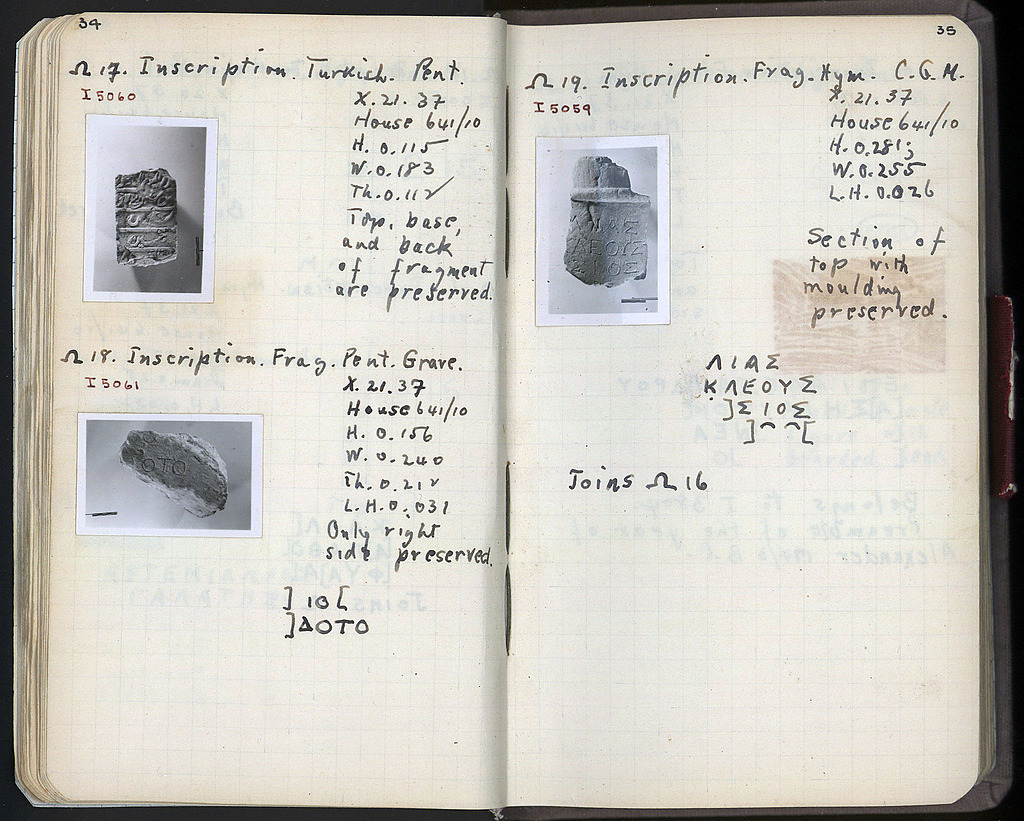 34
Ω 17. Inscription. Turkish. Pent.
I 5060
X. 21. 37
House 641/10
H. 0.115
W. 0.183
Th. 0.112
Top, base,
and back
of fragment
are preserved.
Ω 18. Inscription. Frag. Pent. Grave.
I 5061
X. 21. 37
House 641/10
H. 0.156
W. 0.240
Th. 0.212
L.H. 0.031
Only right
side preserved.
ΟΤΟ
] ΙΟ [
]ΔΟΤΟ
35
Ω 19. Inscription. Frag. Hym. C.G.M.
I 5059
X. 21. 37
House 641/10
W. 0.255
L.H. 0.026
Section of
top with
moulding
preserved.
ΛΙΑΣ
ΚΛΕΟΥΣ
]ΣΙΟΣ
Joins Ω 16